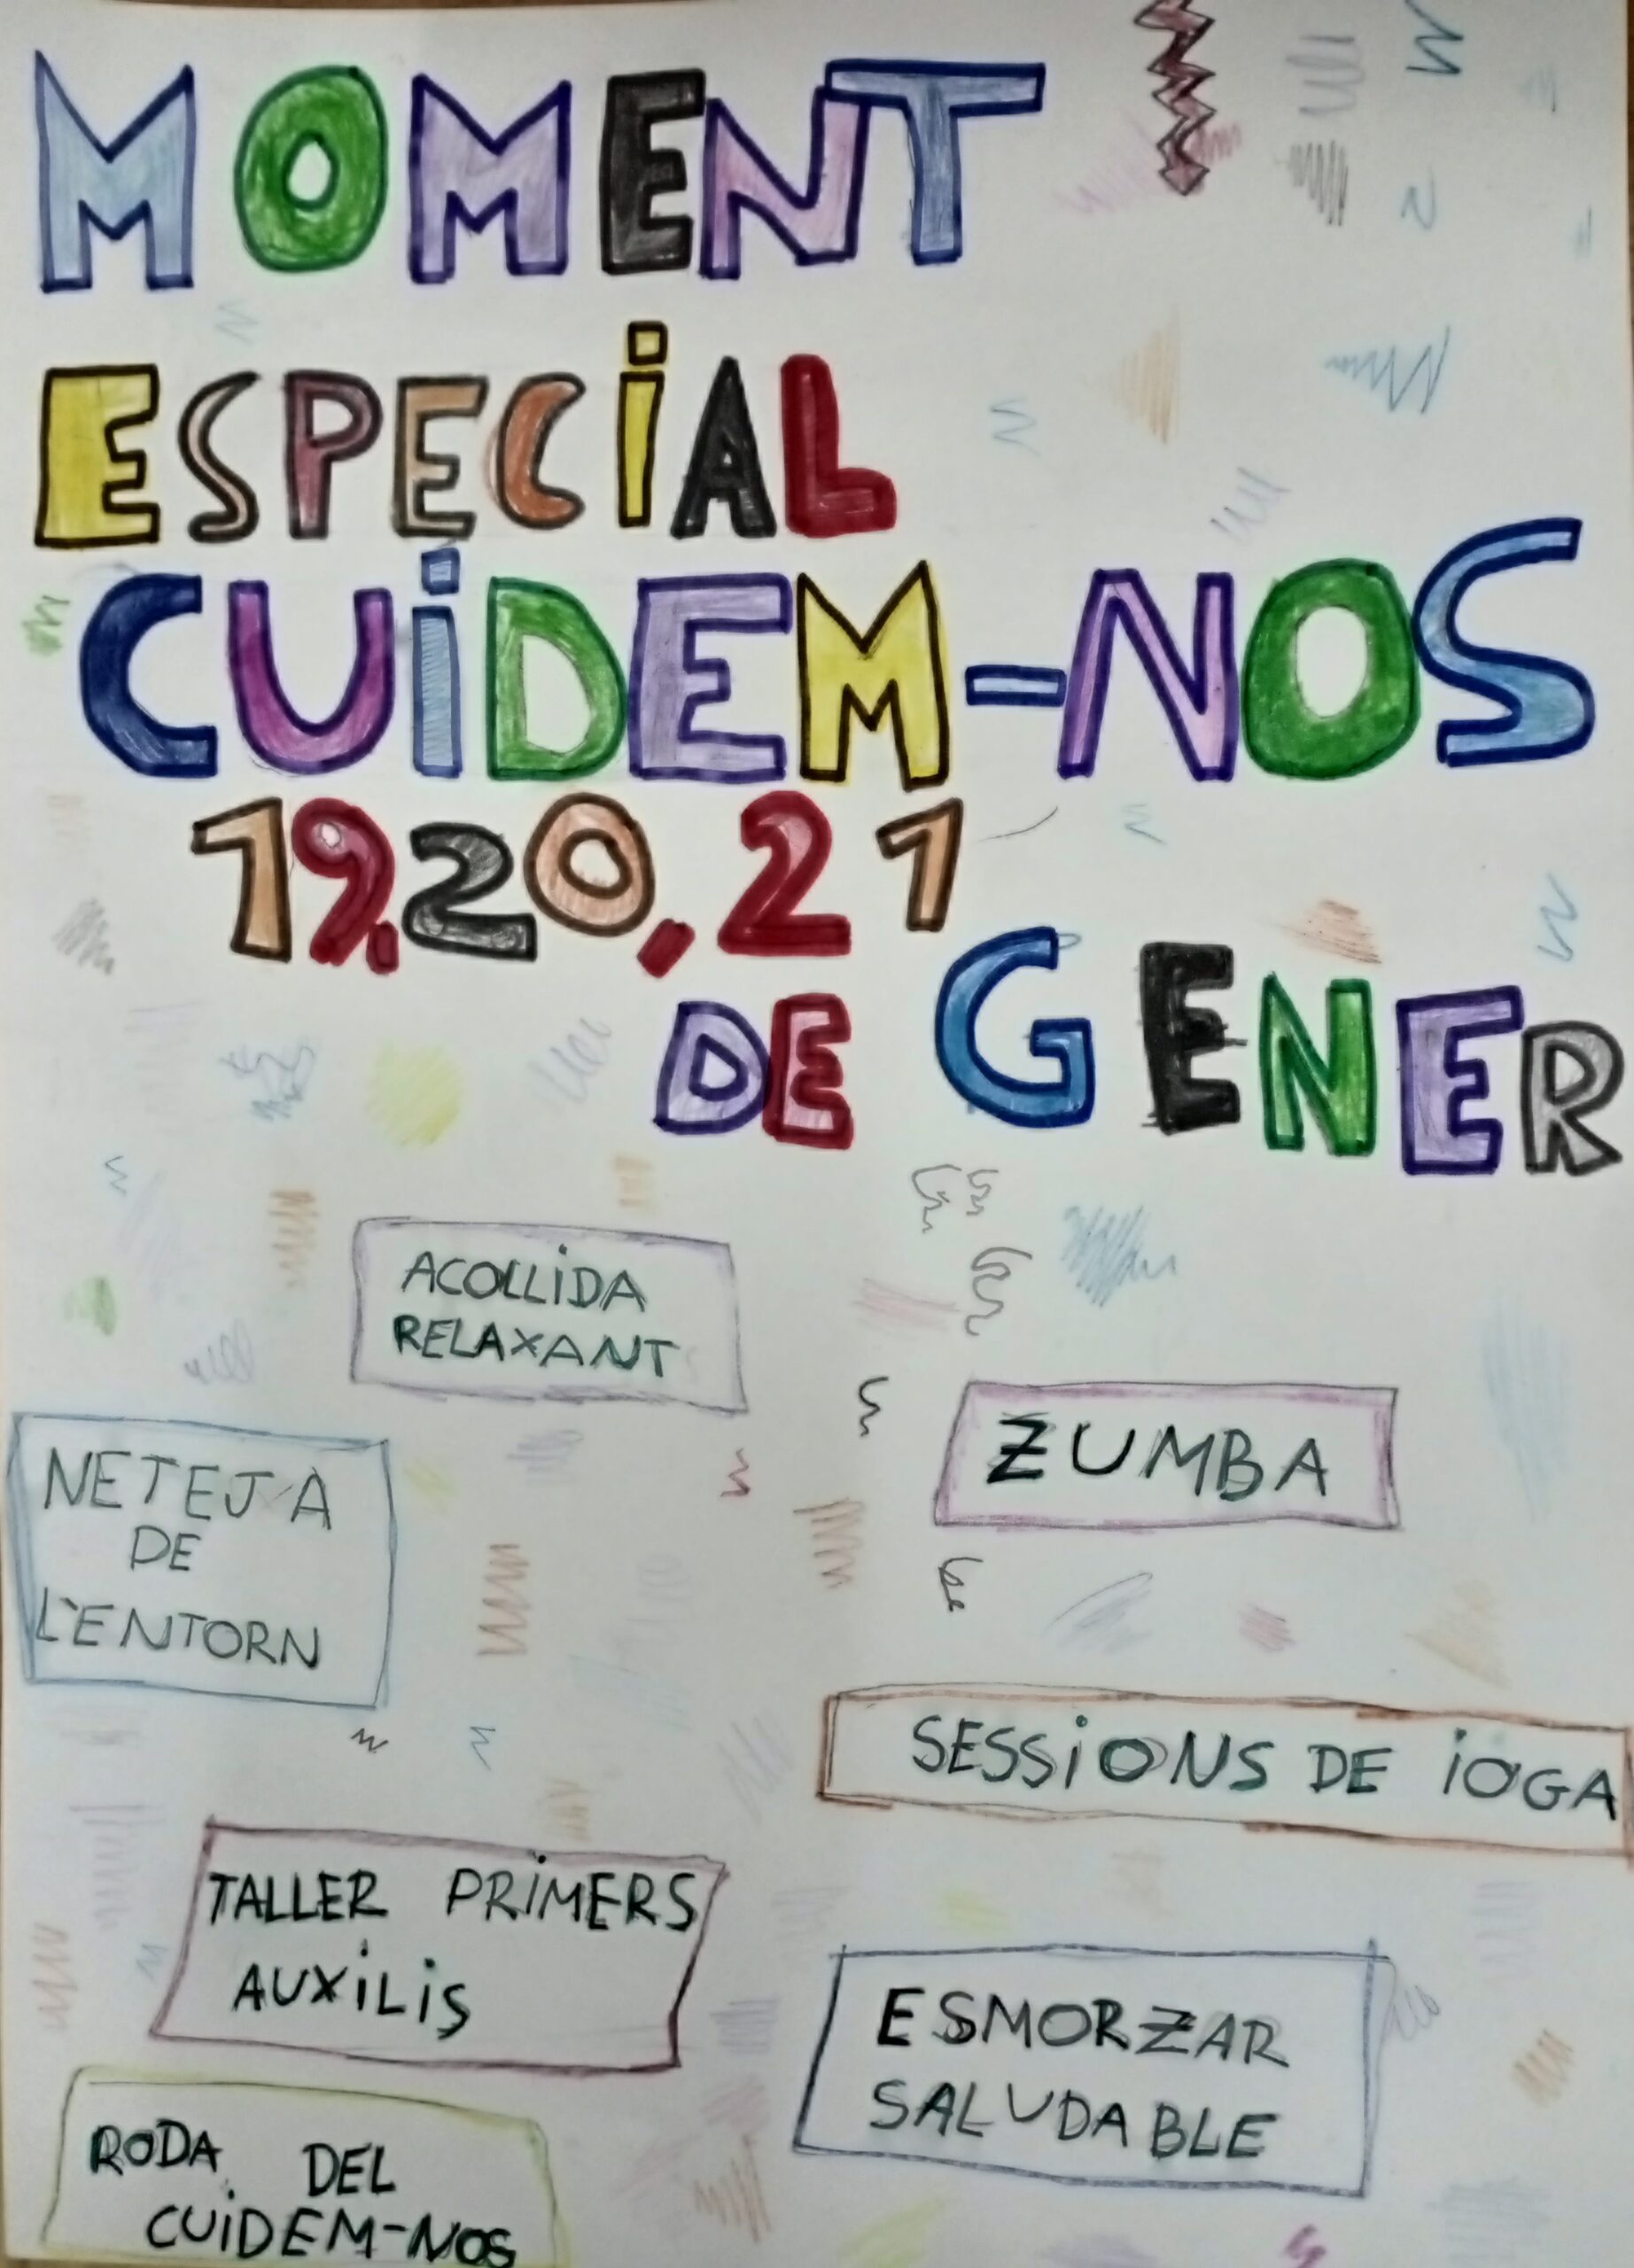 MOMENT
ESPECiAL
CUiDEM-NOS
19,20,21
DE GENER
ACOLLiDA
RELAXANT
ZUMBA
NETEJA
DE
L'ENTORN
SESSiONS DE iOGA
TALLER PRiMERS
AUXiLiS
ESMORZAR
SALUDABLE
RODA DEL
CUiDEM-NOS